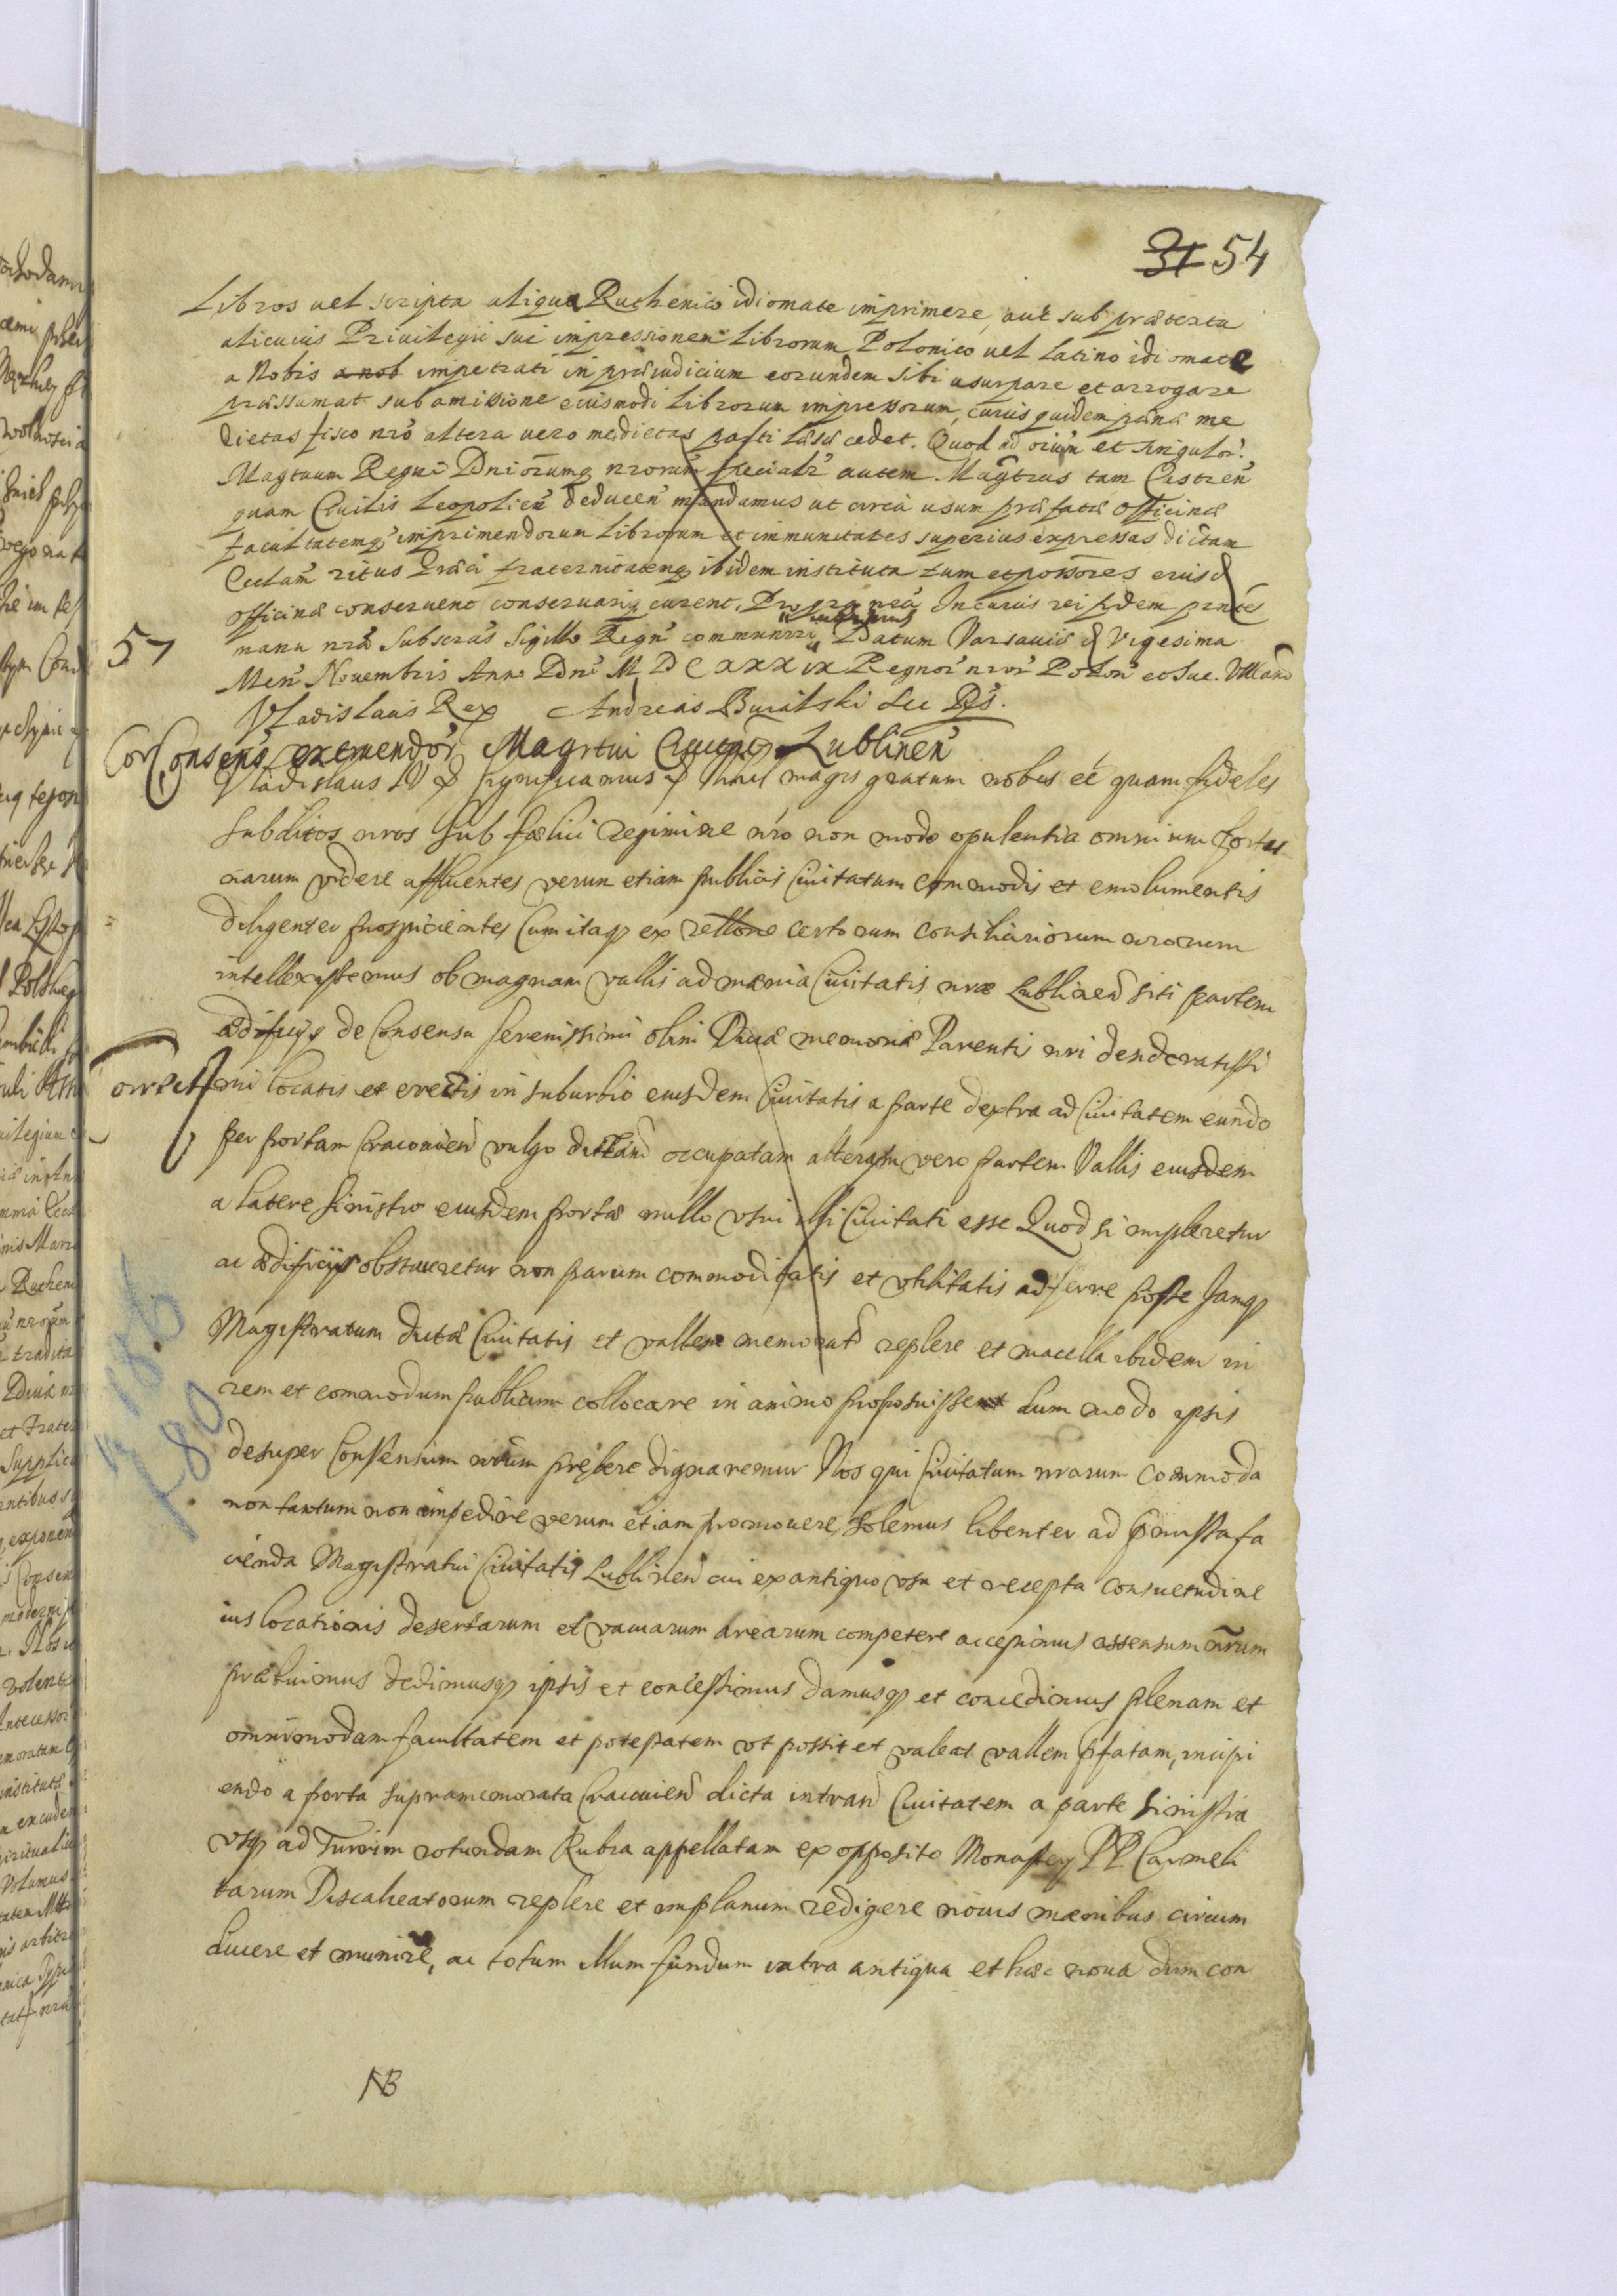 31 54
Libros uel scripta aliqua Ruthenico idiomate imprimere, aut sub prætextu
alicuius Priuilegii sui impressionem Librorum Polonico uel Latino idiomate
a Nobis a nob impetrati in præiudicium eorundem sibi usurpare et arrogare
præssumat sub amissione eiusmodi Librorum impressorum, cuius quidem pœnæ me
dietas fisco nrō altera uero medietas parti læsæ cedet. Quod ad oium et singulor̄
Magtuum Regni Dniorumq nrorum specialr̄ autem Magtrus tam Castren̄
quam Ciuilis Leopolien̄ deducen̄ mandamus ut circa usum præfatæ Officinæ
facultatemq imprimendorum Librorum et immunitates superius expressas dictam
Ecclam ritus Græci fraternitatemq ibidem institutam tum et possores eiusd
officinæ conseruent conseruariq curent, Pro gra nrā In cuius rei fidem prntes
57
manu nrā Subscras Sigillo Regni communiri Datum Varsauiæ d Vigesima
Men̄ Nouembris Anno Dni M D C XXX IX Regnor̄ nror̄ Polon̄ et Sue. VIII anō
Vladislaus Rex Andreas Sec Rs.
Cor Consens exemendor Magrtui Ciuitt Lublinen̄
Vladislaus IV & Significamus & Nihil magis gratum nobis eē quam fideles
subditos nros sub fælici Regimine nrō non modo opulentia omnium fortu
narum videre affluentes verum etiam publicis Ciuitatum commodis et emolumentis
diligenter prospicientes Cum itaq ex rellone certorum consiliariorum nrorum
intellexissemus ob magnam vallis ad mænia Ciuitatis nræ Lublinen̄ siti partem
ædificijs de Consensu serenissimi olim Diuæ memoriæ Parentis nri desideratissi
orrect mi locatis et erectis in suburbio eiusdem Ciuitatis a parte dextra ad Ciuitatem eundo
per portam Cracouien̄ vulgo dictam occupatam alteram vero partem Vallis eiusdem
a latere sinistro eiusdem portæ nullo vsui ipsi Ciuitati esse Quod si impleretur
ac ædificijs obstrueretur non parum commoditatis et vtilitatis adferre posse Jamq
Magistratum dictæ Ciuitatis et vallem memorat replere et macella ibidem in
rem et commodum publicum collocare in animo proposuissent dum modo ipsis
desuper Consensum nrum prębere dignaremur Nos qui Ciuitatum nrarum commoda
non tantum non impedire verum etiam promouere solemus libenter ad præmissa fa
cienda Magistratui Ciuitatis Lublinen̄ cui ex antiquo vsu et recepta consuetudine
ius locationis desertarum et vacuarum Arearum competere accepimus assensum nrum
præbuimus dedimusq ipsis et concessimus damusq et concedimus plenam et
omnimodam facultatem et potestatem vt possit et valeat vallem pfatam, incipi
endo a porta supramemorata Cracouien̄ dicta intran̄ Ciuitatem a parte sinistra
vsq ad Turrim rotundam Rubra appellatam ex opposito Monastery PP Carmeli
tarum Discalceatorum replere et in planum redigere nouis mænibus circum
ducere et munire, ac totum illum fundum intra antiqua et hæc noua dum con
NB